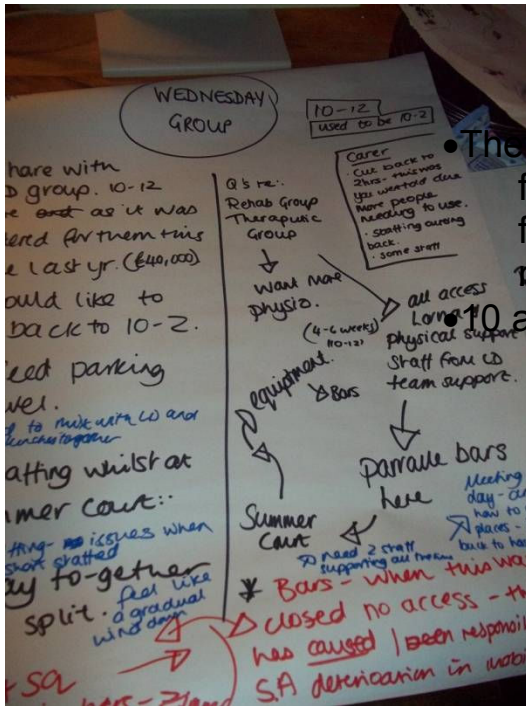 WEDNESDAY
GROUP
10-12
used to be 10-2
hare with
group. 10-12
as it was
ered for them this
e last yr. (£40,000)
ould like to
back to 10-2.
eed parking
to mix with LD and
atting whilst at
mer Court:-
issues when
short staffed
ay to-gether
split.
feel like
a gradual
wind down
Q's re:-
Rehab Group
Therapeutic
Group
Want more
physio.
(4-6 weeks)
(10-12)
equipment.
Bars
Summer
Court
Carer
· Cut back to
2hrs - this was
you wanted due
more people
needing to use.
· staffing
back.
· some staff
all access
Lorna
physical support
Staff from LD
team support.
Parralle bars
here
need 2 staff
supporting all
Meeting
day -
how to
places -
back to
* Bars - when this wa
closed no access - th
has caused / been responsi
S.A deterioration in mobi
+ SQ
•The
f
f
•10 a